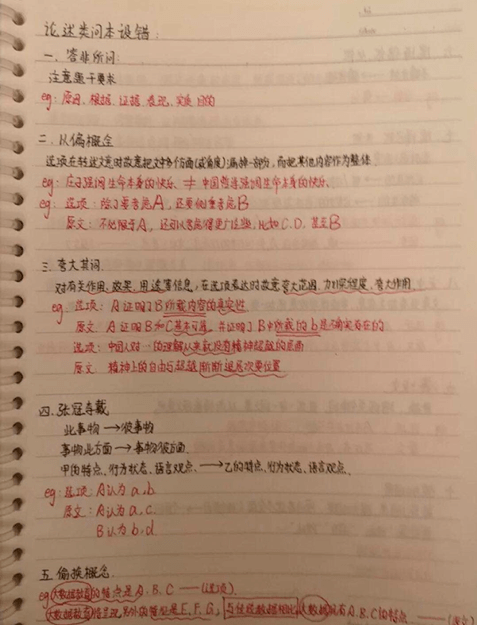 论述类问本设错:
一、答非所问:
注意题干要求
eg:原因、根据、证据、表现、实质、目的
二、以偏概全
选项在转述文意时故意把对多个方面(或角度)漏掉一部分,而把其他内容作为整体.
eg:庄子强调生命本身的快乐 ≠ 中国哲学强调生命本身的快乐.
eg:选项:除了要考虑A,还要侧重考虑B
原文:不局限于A,还可以考虑得更广泛些,比如C.D,甚至B
三、夸大其词.
对有关作用、效果、用途等信息,在选项表达时故意夸大范围、加深程度、夸大作用
eg:选项:A证明了B所载内容的真实性.
原文:A证明B和C基本可靠,并证明了B中所载的b是确实存在的
选项:中国人对一的理解从来就没有精神超越的层面
原文:精神上的自由与超越渐渐退居次要位置
四、张冠李戴
此事物→彼事物
事物此方面→事物彼方面.
甲的特点、行为状态、语言观点、→乙的特点、行为状态、语言观点.
eg:选项:A认为a,b
原文:A认为a,c.
B认为b,d
五、偷换概念.
eg 大数据教育的特点是A.B.C——(选项)
大数据教育 呈现 另外的特征是E.F.G, 与传统数据相比,大数据具有A.B.C的特点——(原文)